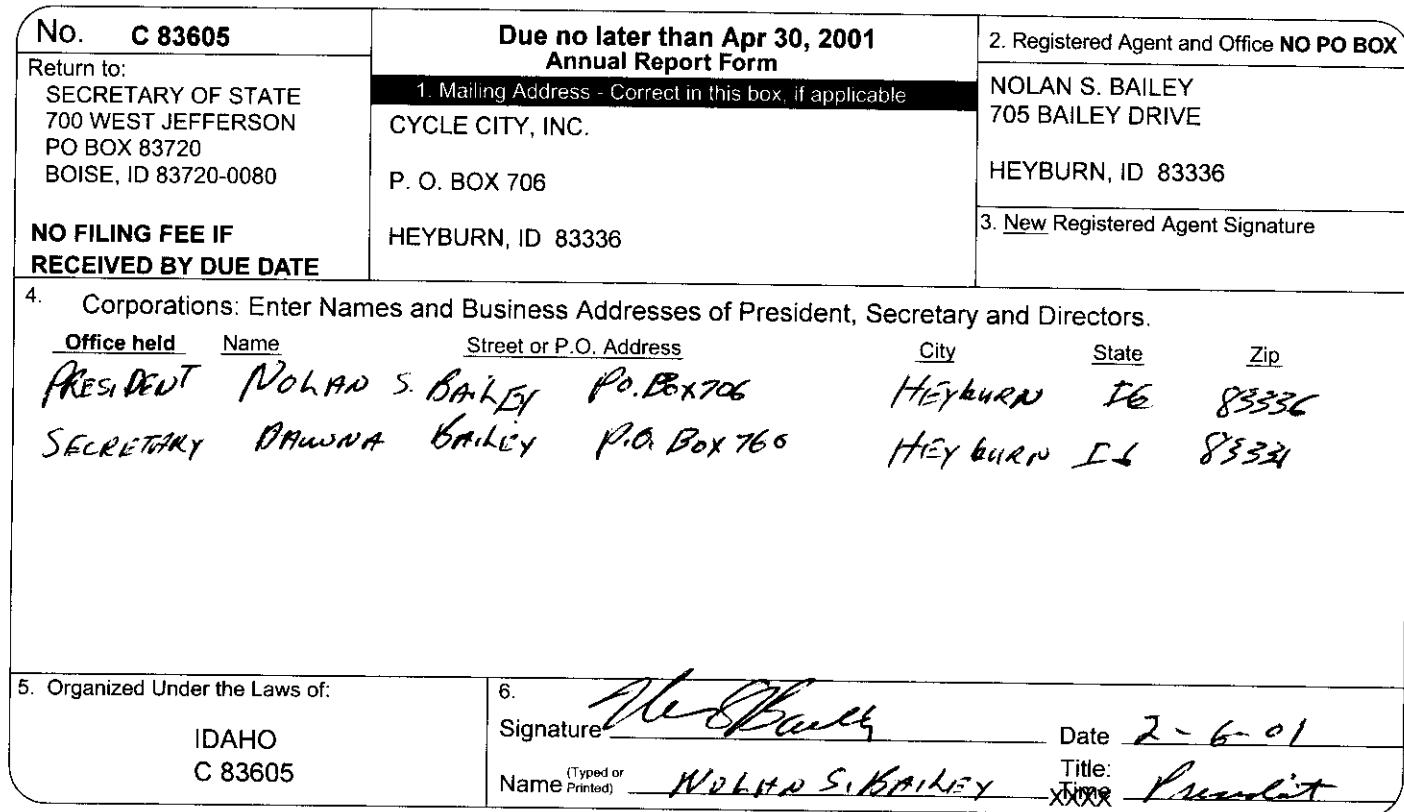 No. C 83605
Return to:
SECRETARY OF STATE
700 WEST JEFFERSON
PO BOX 83720
BOISE, ID 83720-0080
NO FILING FEE IF
RECEIVED BY DUE DATE
Due no later than Apr 30, 2001
Annual Report Form
1. Mailing Address - Correct in this box, if applicable
CYCLE CITY, INC.
P. O. BOX 706
HEYBURN, ID 83336
2. Registered Agent and Office NO PO BOX
NOLAN S. BAILEY
705 BAILEY DRIVE
HEYBURN, ID 83336
3. New Registered Agent Signature
4. Corporations: Enter Names and Business Addresses of President, Secretary and Directors.
Office held Name Street or P.O. Address City State Zip
PRESIDENT NOLAN S. BAILEY P.O. BOX 706 HEYBURN 83336
SECRETARY BAILEY P.O. BOX 760 HEYBURN
5. Organized Under the Laws of:
IDAHO
C 83605
6.
Signature Date 2-6-01
Name (Typed or Printed) NOLAN S. BAILEY Title: President